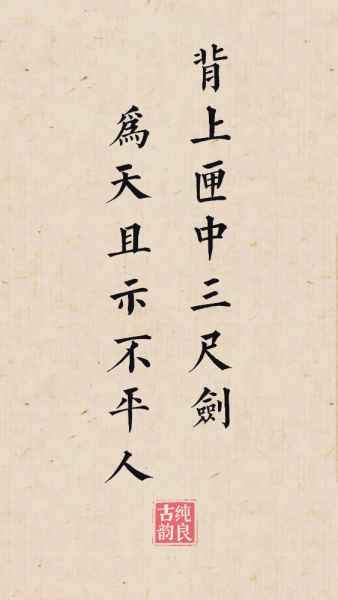 背上匣中三尺劍
為天且示不平人
纯良
古韵